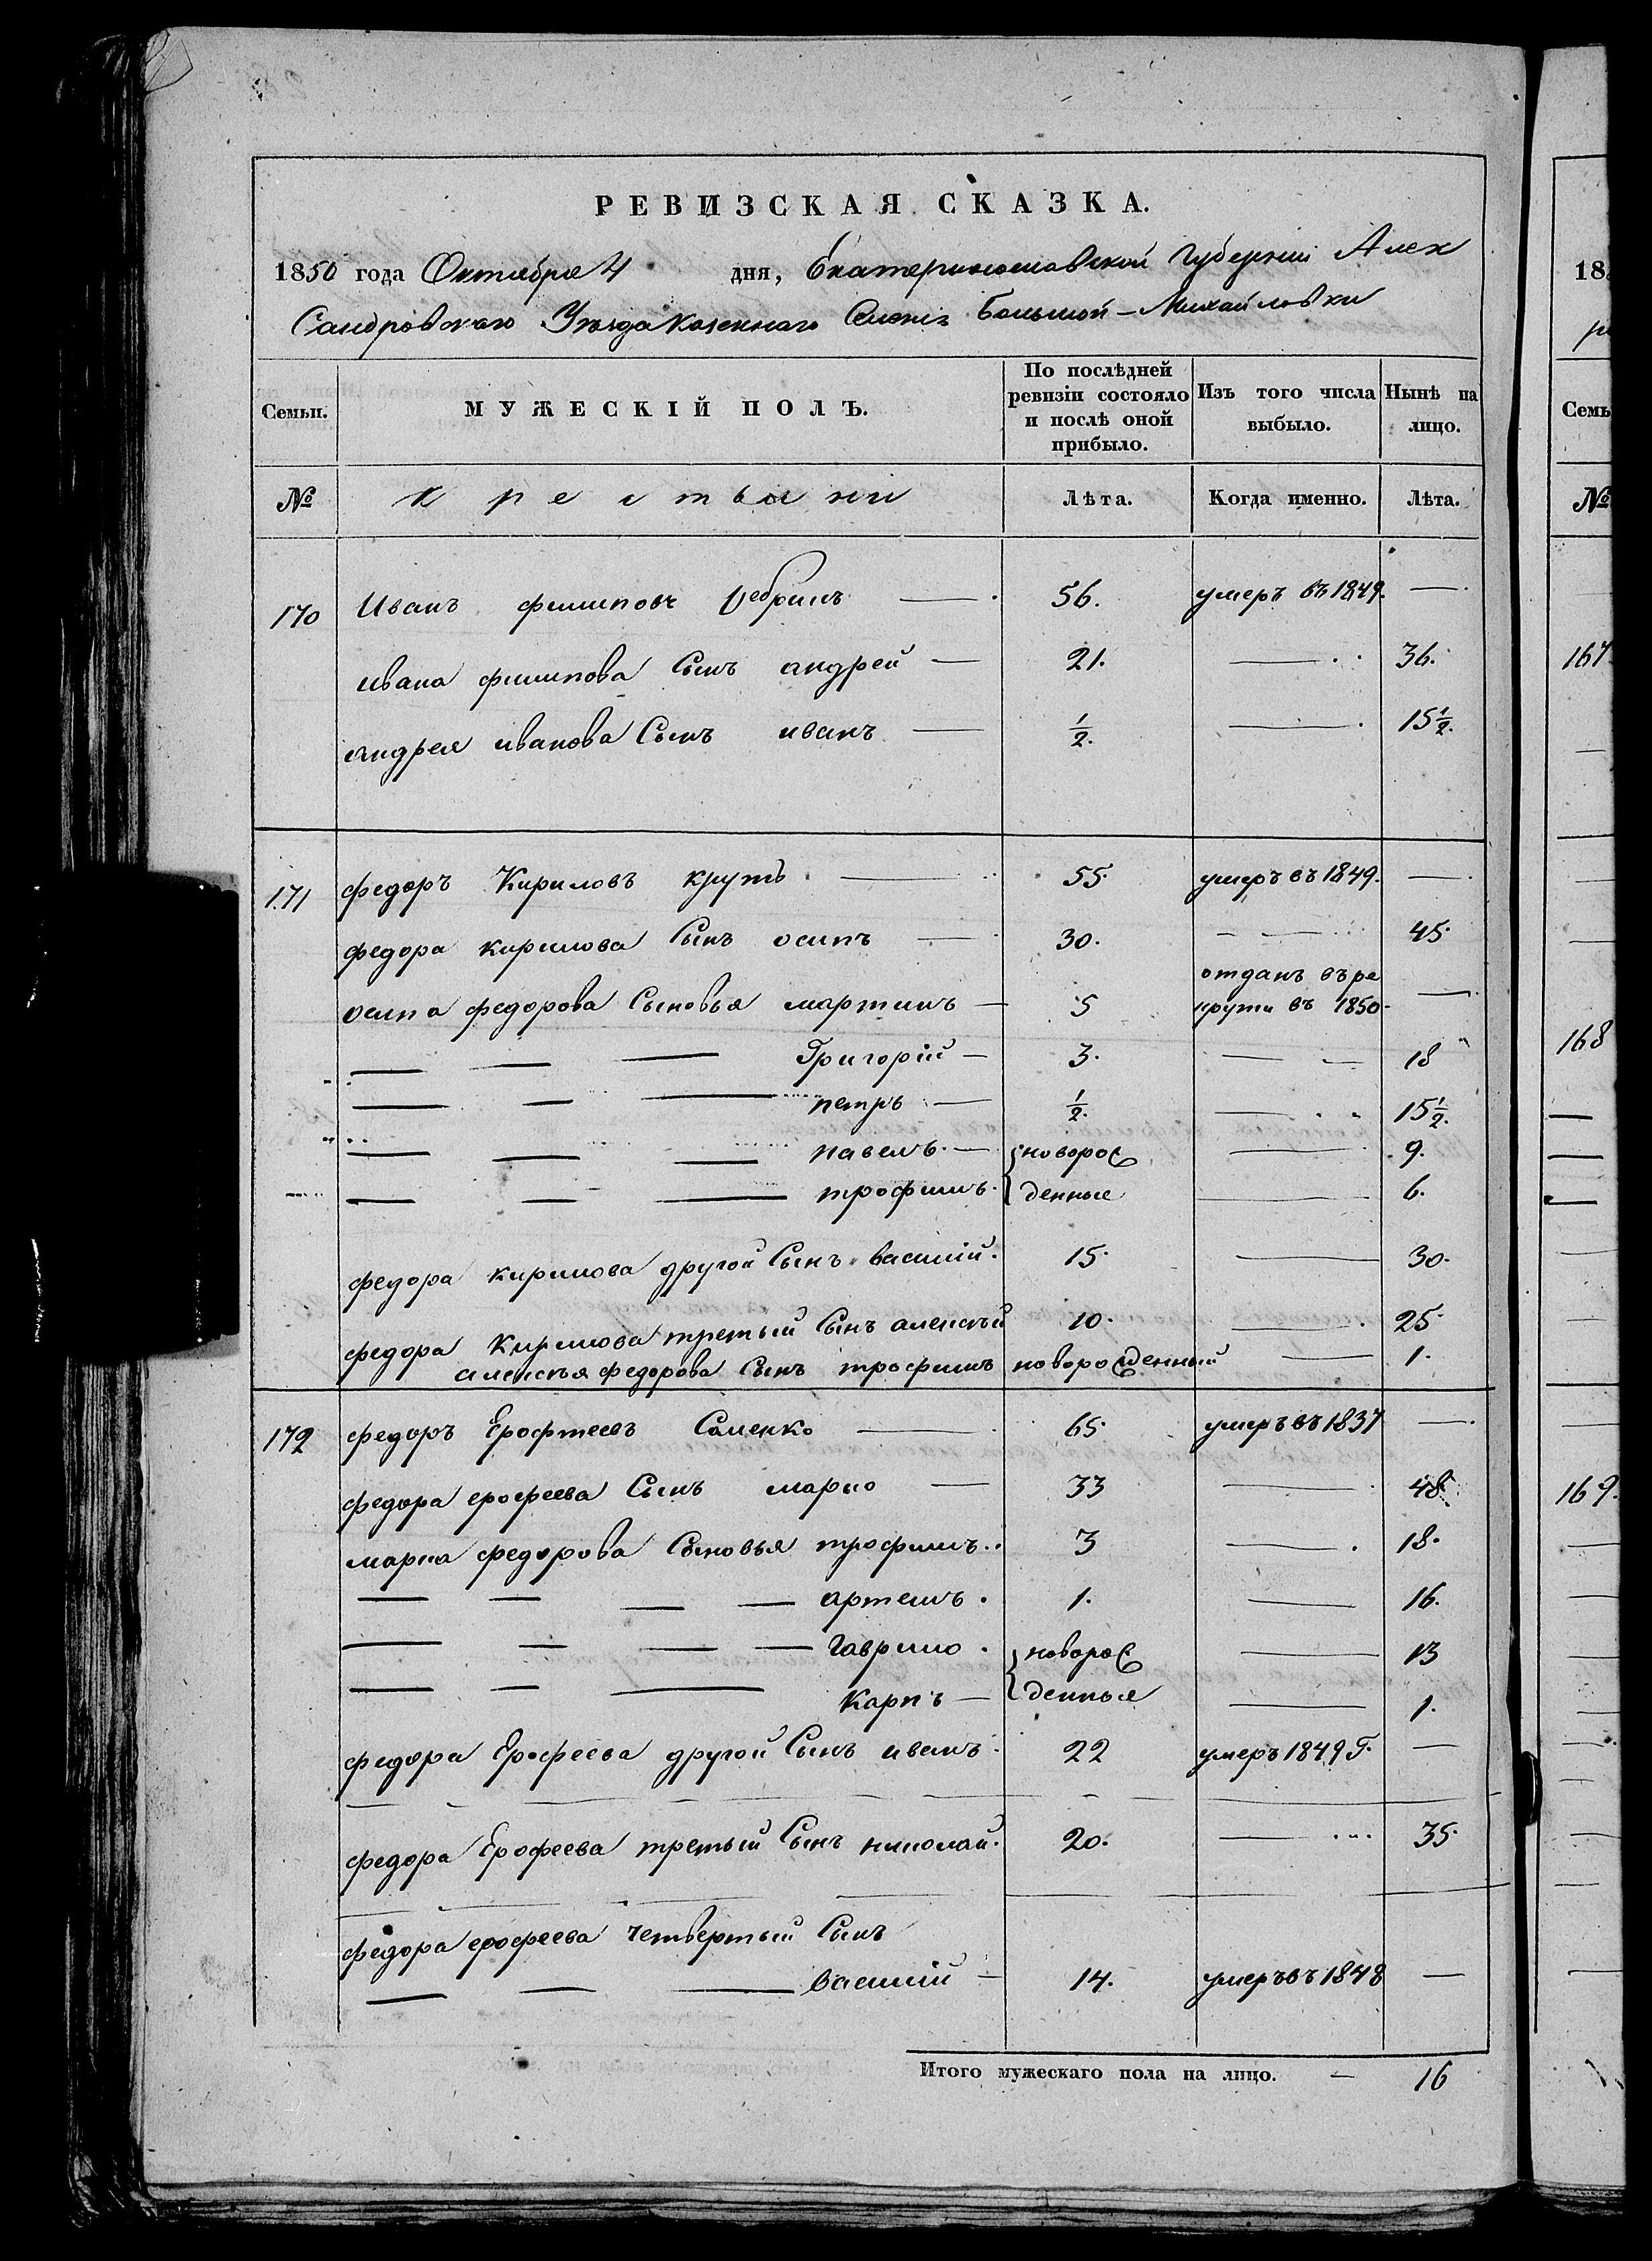 РЕВИЗСКАЯ СКАЗКА.
1850 года Октября 4 дня, Екатеринославской Губерніи Алек
Сандровскаго Уѣзда Казеннаго Селенія Большой-Михайловки
Семьи. МУЖЕСКІЙ ПОЛЪ. По послѣдней ревизіи состояло и послѣ оной прибыло. Изъ того числа выбыло. Нынѣ на лицо.
№ Крестьяніи Лѣта. Когда именно. Лѣта.
170 Иванъ филиповъ 56. умеръ въ 1849. —
ивана филипова Сынъ андрей — 21. — 36.
андрея иванова Сынъ иванъ — 1/2. — 15 1/2.
171 федоръ Кириловъ крутъ — 55. умеръ въ 1849. —
федора кирилова Сынъ осипъ — 30. — 45.
осипа федорова Сыновья мартинъ — 5 отданъ въ ре
круты въ 1850. —
— — — Григорій — 3. — 18
— — — петръ — 1/2. — 15 1/2.
— — — павелъ — новорож — 9.
— — — трофимъ. денные — 6.
федора кирилова другой Сынъ василій. 15. — 30.
федора Кирилова третьій Сынъ алексѣй 10. — 25.
алексѣя федорова Сынъ трофимъ новорожденный — 1.
172 федоръ Ерофтеевъ Саленко — 65. умеръ въ 1837 —
федора ерофеева Сынъ марко — 33 — 48
марка федорова Сыновья трофимъ. 3 — 18.
— — — — артемъ. 1. — 16.
— — — — Гаврило. новорож — 13
— — — Карпъ — денные — 1.
федора Ерофеева другой Сынъ иванъ. 22 умеръ 1849 Г. —
федора Ерофеева третьій Сынъ николай. 20. — 35.
федора ерофеева четвертый Сынъ
— — — василій — 14. умеръ въ 1848 —
Итого мужескаго пола на лицо. — 16
18
Семь
№
167.
168
169.